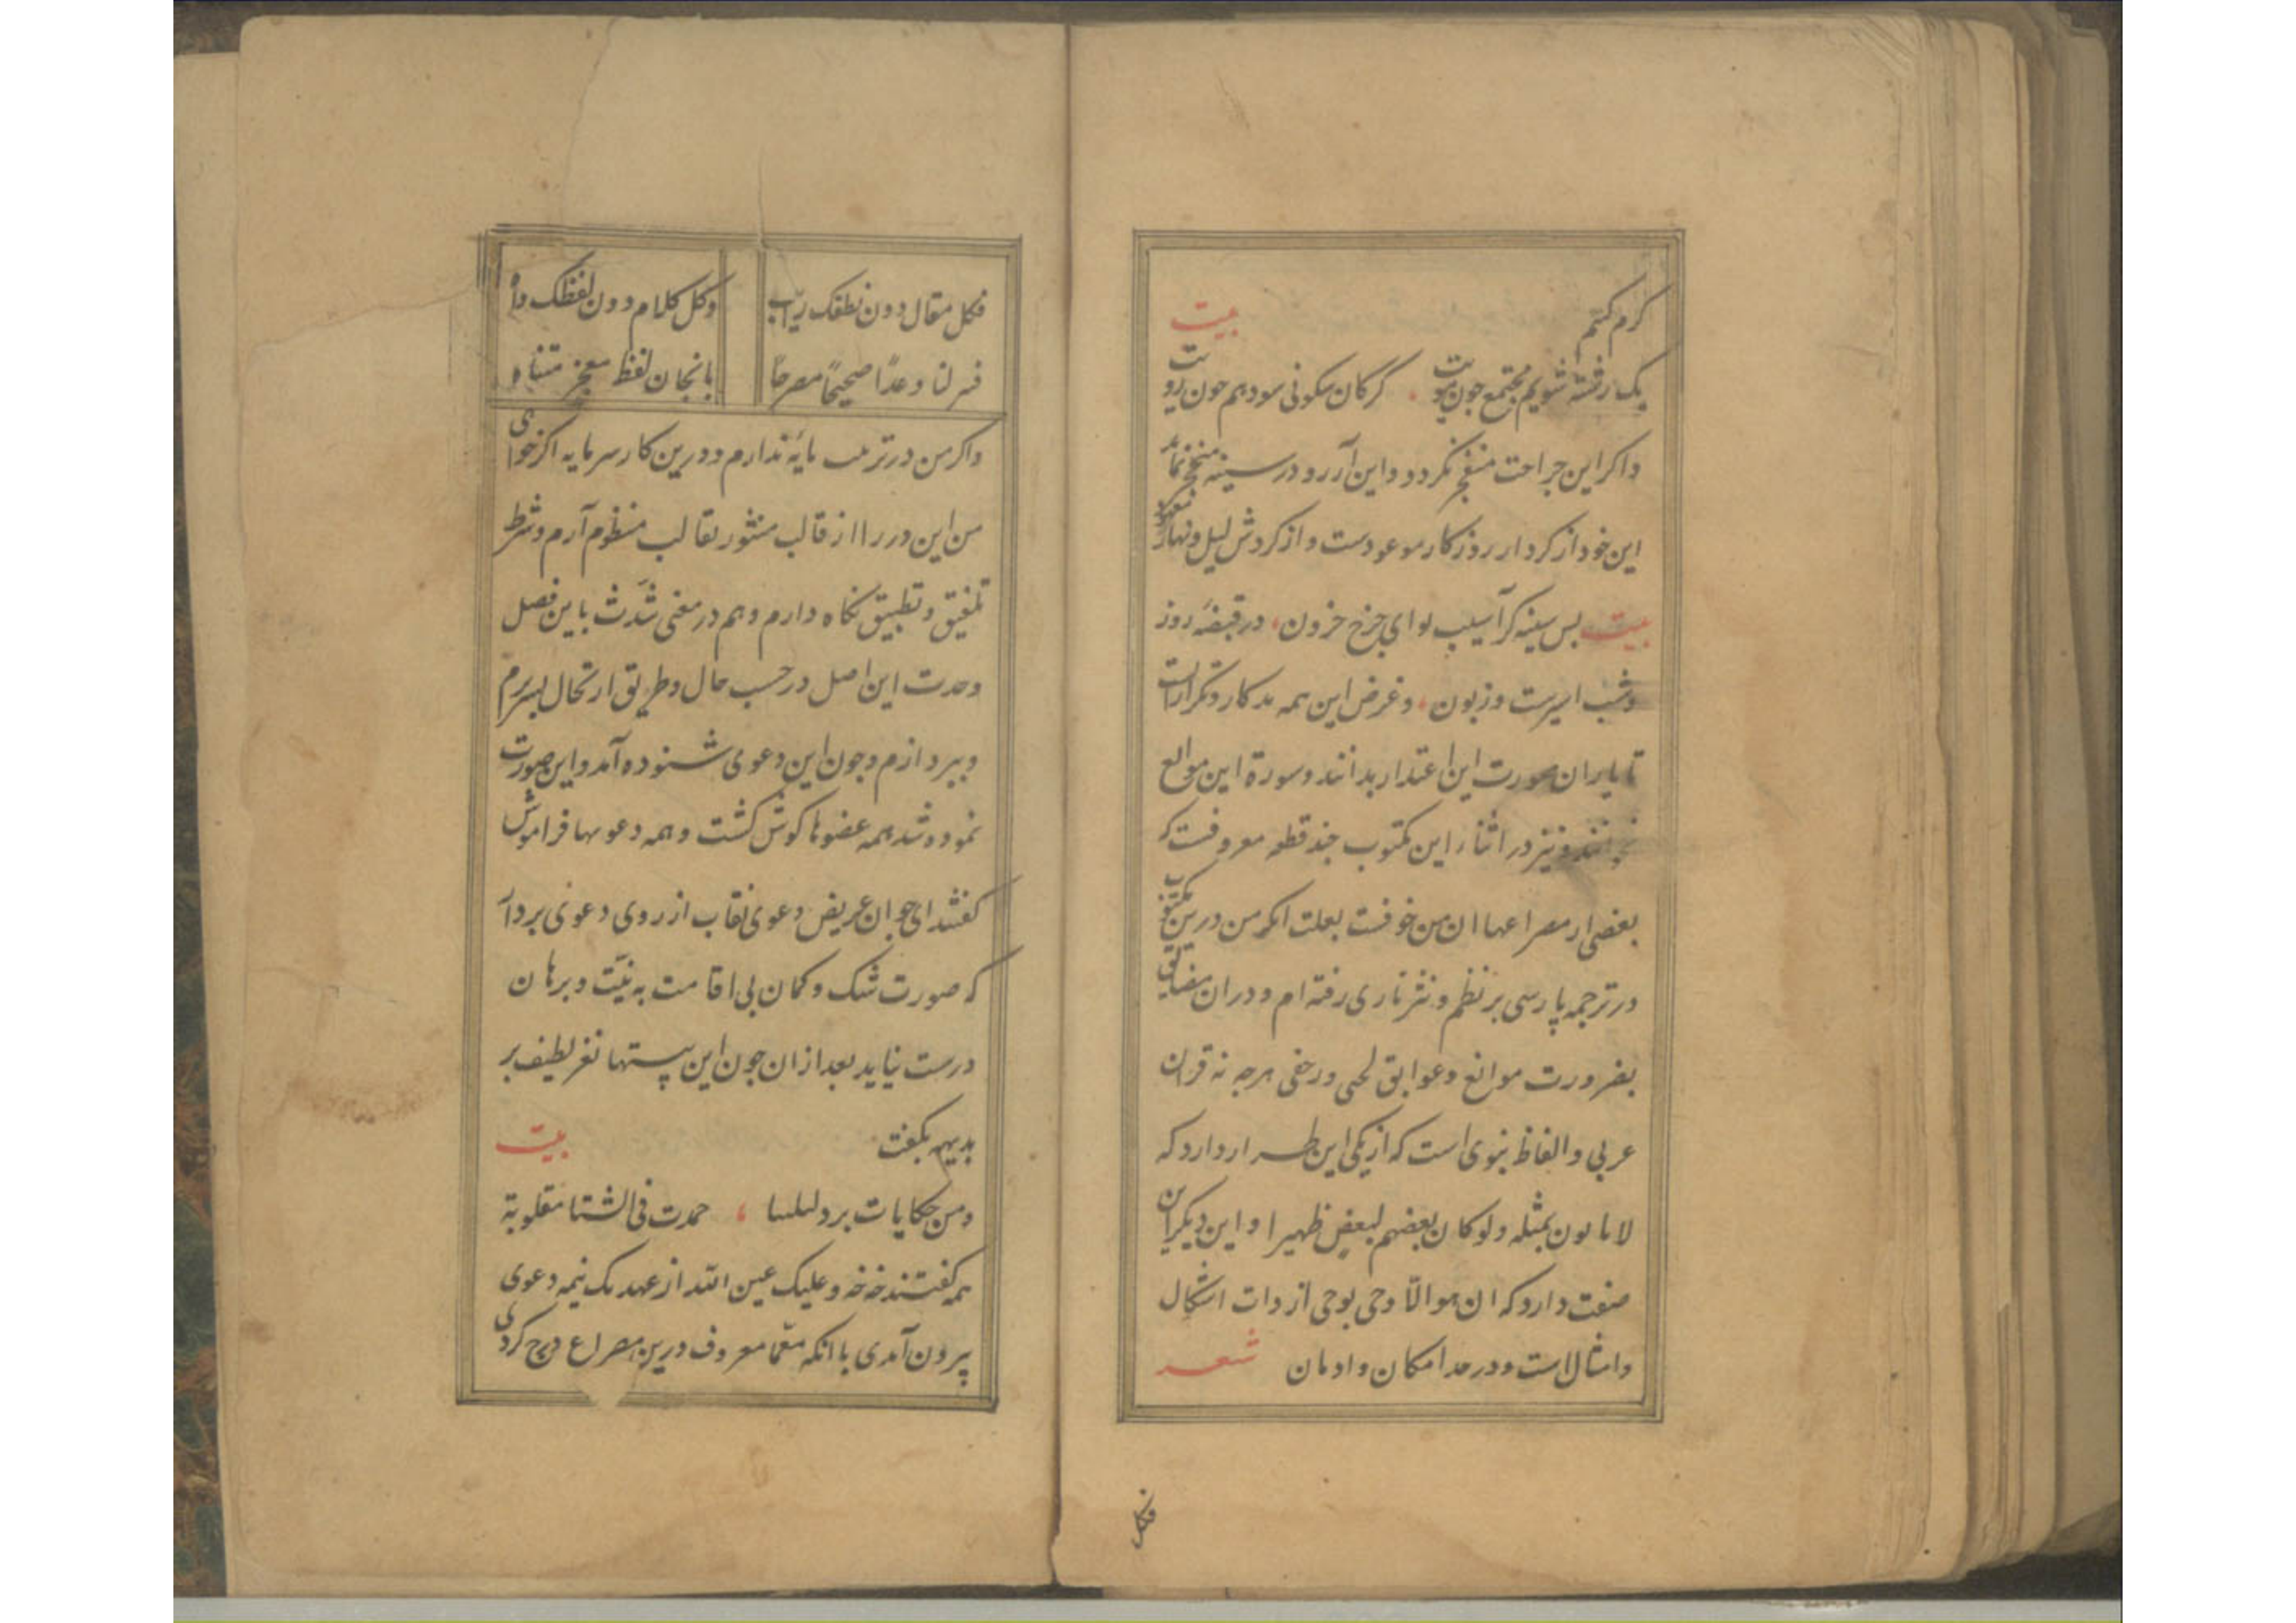 کرم کنیم
بیت
یک رشته شویم مجتمع جون پوست کرکان سکونی سود هم جون روت
واکر این جراحت منفجر نکردد و این آرزو در سینه متحجر نماند
این خود از کردار روزکار موعودست و از کردش لیل و نهار
بیت بس سینه کز آسیب لوای جرخ خرون در قبضه روز
وشب اسیرست و زبون و غرض این همه تذکار و تکرار آنست
تا یاران صورت این اعتذار بدانند و سورة این موانع
بخوانند و نیز در اثناء این مکتوب جند قطعه معروفست که
بعضی از مصراعها ان من خوفست بعلت انکه من درین مکتوب
در ترجمه پارسی بر نظم و نثر تازی رفته ام و در ان مضایق
بضرورت موانع و عوایق لحنی و زحفی هرجه نه قران
عربی و الفاظ نبوی است که از یکی این طراز دارد که
لا یاتون بمثله ولو کان بعضهم لبعض ظهیرا و این دیکر این
صفت دارد که ان هو الّا وحی یوحی از ذات اشکال
وامثال است و در حد امکان و ادمان شعر
فکل
فکل مقال دون نطقک ریّب وکل کلام دون لفظک واه
فسر لنا وعدًا صحیحًا مصرحًا بانجان لفظ معجز متناه
واکر من در ترتیب مایهٔ ندارم و درین کار سرمایه اکر خواهی
من این درر را از قالب منثور بقالب منظوم آرم و شرط
تلفیق و تطبیق نکاه دارم و هم در معنی شدّت باین فصل
وحدت این اصل در حسب حال و طریق ارتحال بسر برم
وبپردازم و جون این دعوی شنوده آمد و این صورت
نموده شد همه عضوها کوش کشت و همه دعویها فراموش
کفتند ای جوان عریض دعوی نقاب از روی دعوی بردار
که صورت شک و کمان بی اقامت بیّنت و برهان
درست نیاید بعد از ان جون این بیتها نغز لطیف بر
بدیهه بکفت بیت
ومن حکایات برد لیلتنا جمدت فی الشتا مقلوبة
همه کفتند خه خه وعلیک عین الله از عهد یک نیمه دعوی
بیرون آمدی با انکه معمّا معروف درین مصراع درج کردی